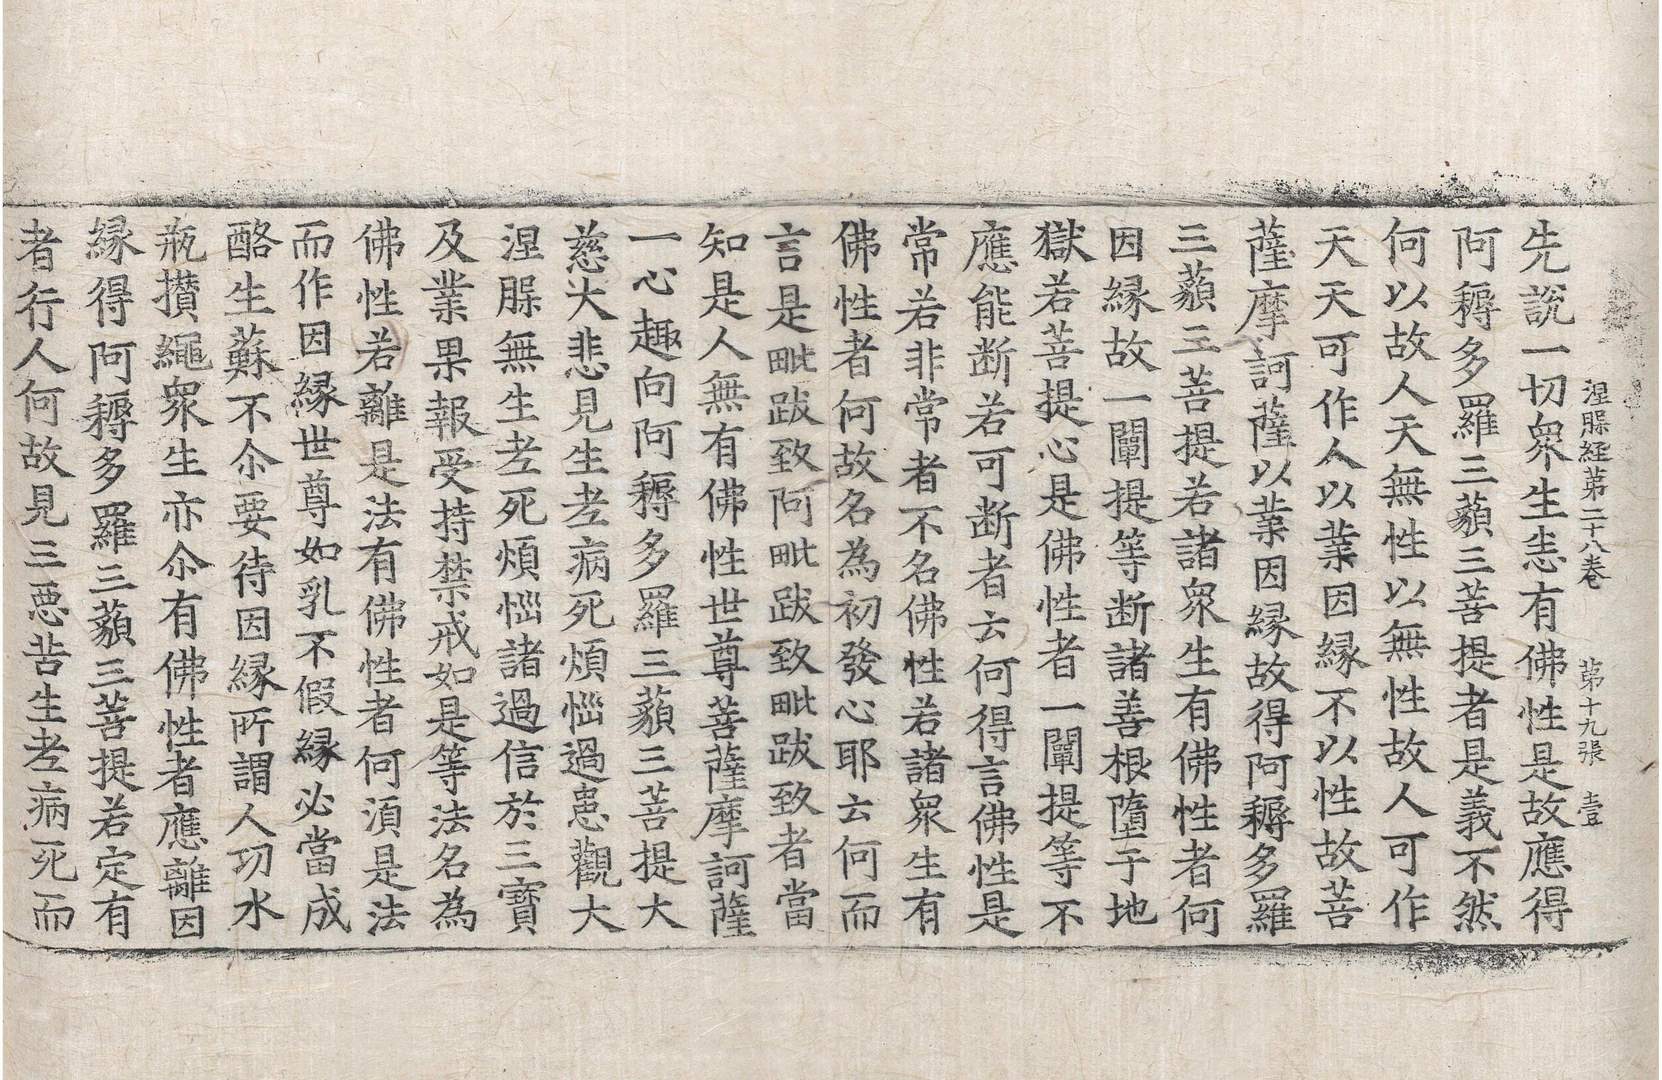 涅脲經第二十八卷 第十九張 壹
先說一切衆生悉有佛性是故應得
阿耨多羅三藐三菩提者是義不然
何以故人天無性以無性故人可作
天天可作人以業因緣不以性故菩
薩摩訶薩以業因緣故得阿耨多羅
三藐三菩提若諸衆生有佛性者何
因緣故一闡提等斷諸善根墮于地
獄若菩提心是佛性者一闡提等不
應能断若可断者云何得言佛性是
常若非常者不名佛性若諸衆生有
佛性者何故名為初發心耶云何而
言是毗跋致阿毗跋致毗跋致者當
知是人無有佛性世尊菩薩摩訶薩
一心趣向阿耨多羅三藐三菩提大
慈大悲見生老病死煩惱過患觀大
涅脲無生老死煩惱諸過信於三寶
及業果報受持禁戒如是等法名為
佛性若離是法有佛性者何湏是法
而作因縁世尊如乳不假縁必當成
酪生蘇不尒要待因縁所謂人功水
瓶攢繩衆生亦尒有佛性者應離因
縁得阿耨多羅三藐三菩提若定有
者行人何故見三惡苦生老病死而